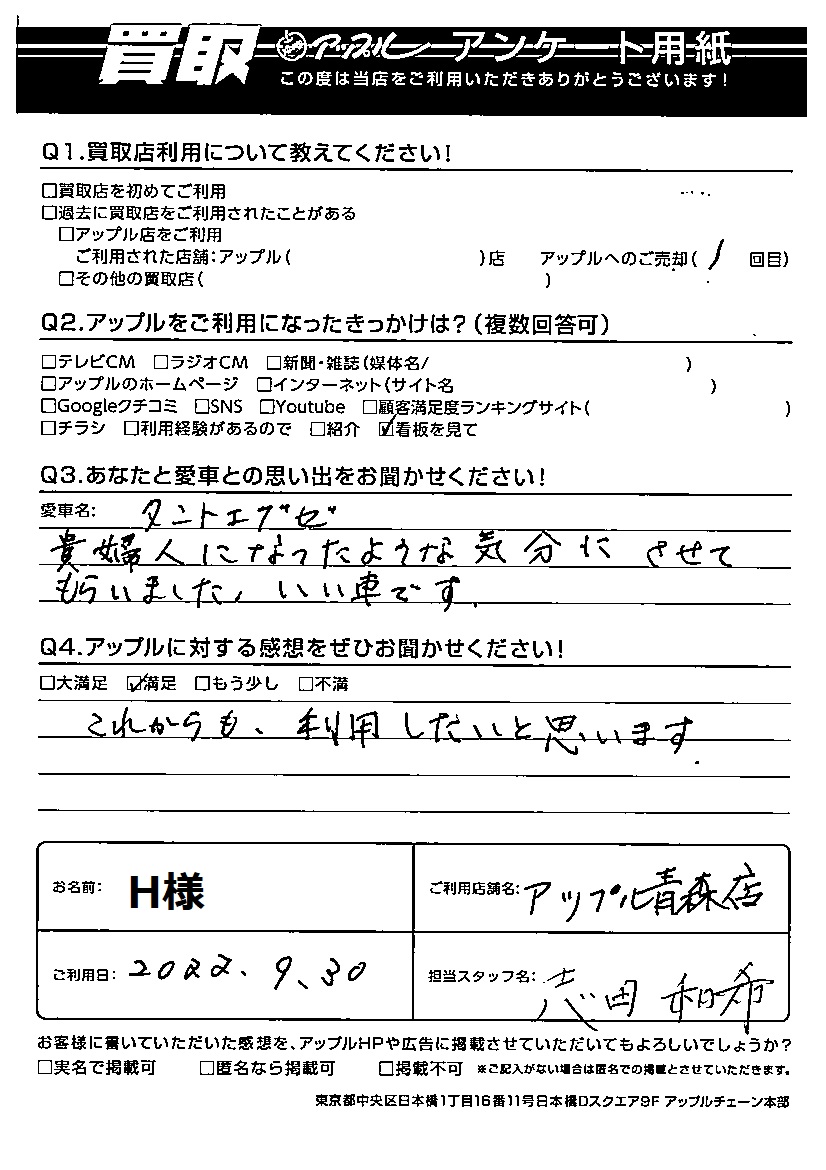 買取 アップル アンケート用紙
この度は当店をご利用いただきありがとうございます!
Q1.買取店利用について教えてください!
□買取店を初めてご利用
□過去に買取店をご利用されたことがある
□アップル店をご利用
ご利用された店舗:アップル( )店 アップルへのご売却( 1 回目)
□その他の買取店( )
Q2.アップルをご利用になったきっかけは?(複数回答可)
□テレビCM □ラジオCM □新聞・雑誌(媒体名/ )
□アップルのホームページ □インターネット(サイト名 )
□Googleクチコミ □SNS □Youtube □顧客満足度ランキングサイト( )
□チラシ □利用経験があるので □紹介 ☑看板を見て
Q3.あなたと愛車との思い出をお聞かせください!
愛車名: タントエグゼ
貴婦人になったような気分にさせて
もらいました。いい車です.
Q4.アップルに対する感想をぜひお聞かせください!
□大満足 ☑満足 □もう少し □不満
これからも、利用したいと思います.
お名前: H様 ご利用店舗名: アップル青森店
ご利用日: 2022.9.30 担当スタッフ名: 志田 和希
お客様に書いていただいた感想を、アップルHPや広告に掲載させていただいてもよろしいでしょうか?
□実名で掲載可 □匿名なら掲載可 □掲載不可 ※ご記入がない場合は匿名での掲載とさせていただきます。
東京都中央区日本橋1丁目16番11号日本橋Dスクエア9F アップルチェーン本部